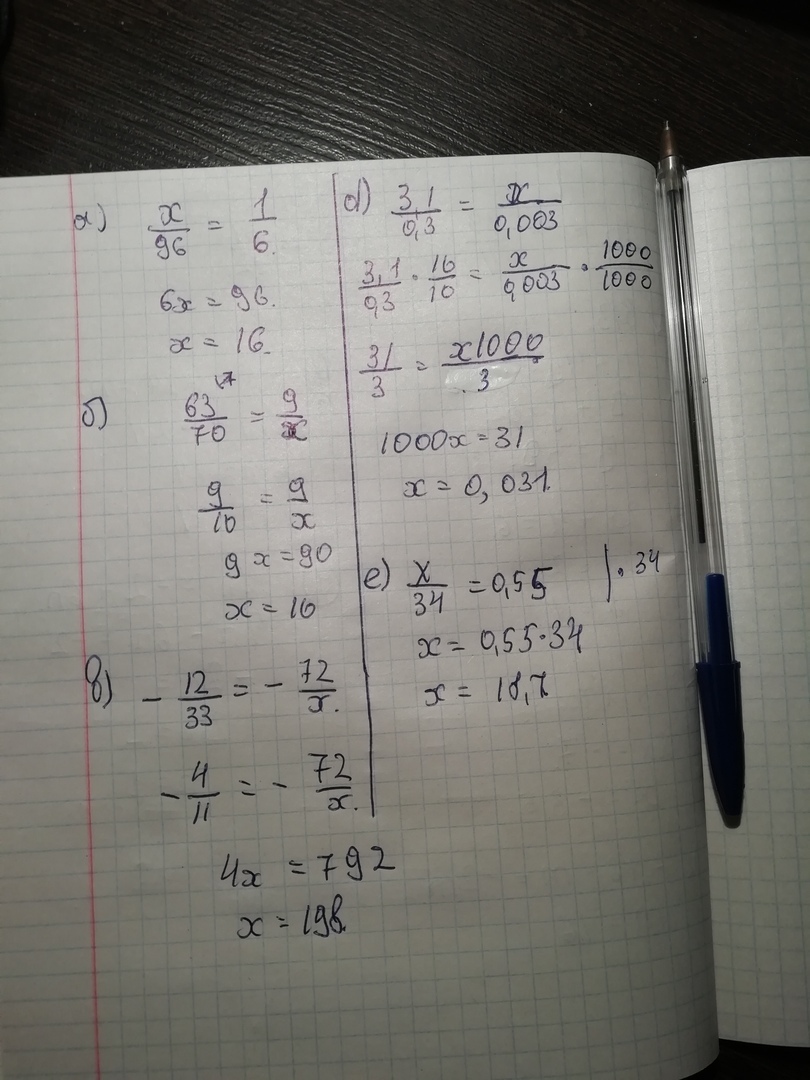 а) x/96 = 1/6.
6x = 96.
x = 16.
б) 63\7/70 = 9/x
9/10 = 9/x
9x = 90
x = 10
в) - 12/33 = - 72/x.
- 4/11 = - 72/x.
4x = 792
x = 198.
d) 3,1/0,3 = x/0,003
3,1/0,3 · 10/10 = x/0,003 · 1000/1000
31/3 = x1000/3
1000x = 31
x = 0,031.
е) x/34 = 0,55 | · 34
x = 0,55 · 34
x = 18,7